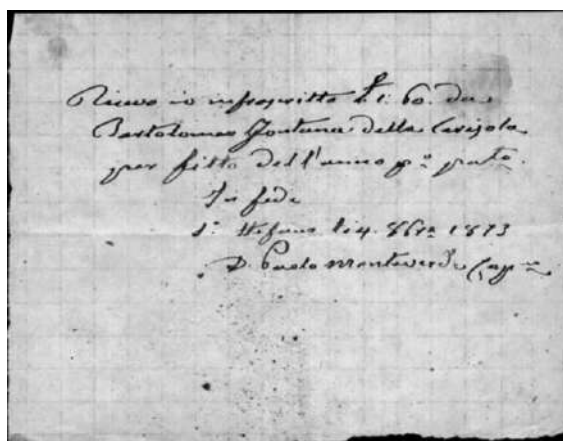 Ricevo io infrascritto £ t: 60. da
Bartolomeo Fontana della Ceresola
per fitto dell'anno p.º pato.
In fede
S. Stefano li 4. 8bre 1873
D. Paolo Monteverde Capno